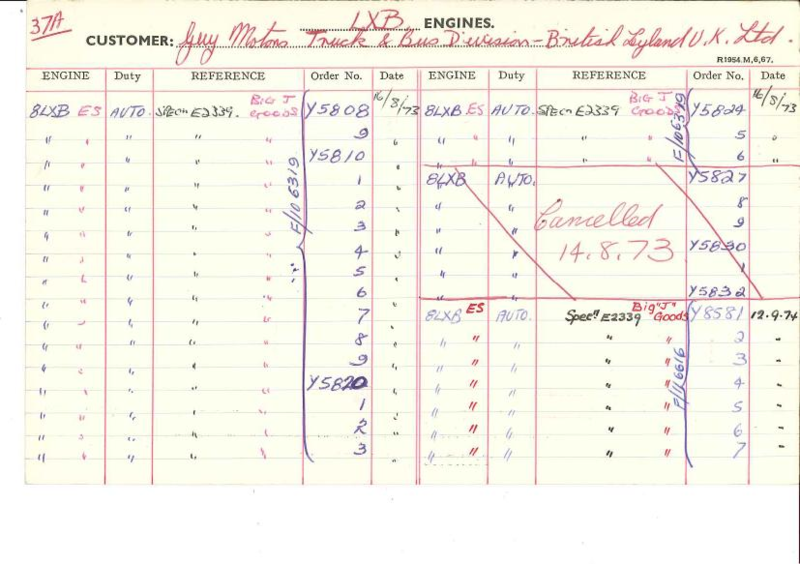 37A
LXB ENGINES.
CUSTOMER: Guy Motors Truck & Bus Division - British Leyland U.K. Ltd.
R1954.M,6,67.
ENGINE Duty REFERENCE Order No. Date ENGINE Duty REFERENCE Order No. Date
8LXB ES AUTO. Specn E2339. BIG J GOODS Y5808 16/8/73
" " " " " 9 "
" " " " " Y5810 "
" " " " " 1 "
" " " " " 2 "
" " " " " 3 "
" " " " " 4 "
" " " " " 5 "
" " " " " 6 "
" " " " " 7 "
" " " " " 8 "
" " " " " 9 "
" " " " " Y5820 "
" " " " " 1 "
" " " " " 2 "
" " " " " 3 "
F/106319
8LXB ES AUTO. Specn E2339 BIG J GOODS Y5824 16/8/73
" " " " " 5 "
" " " " " 6 "
F/106319
8LXB AUTO. Y5827
" " 8
" " 9
" " Y5830
" " 1
" " Y5832
Cancelled
14.8.73
8LXB ES AUTO. Specn E2339 Big "J" Goods Y8581 12.9.74
" " " " " 2 "
" " " " " 3 "
" " " " " 4 "
" " " " " 5 "
" " " " " 6 "
" " " " " 7 "